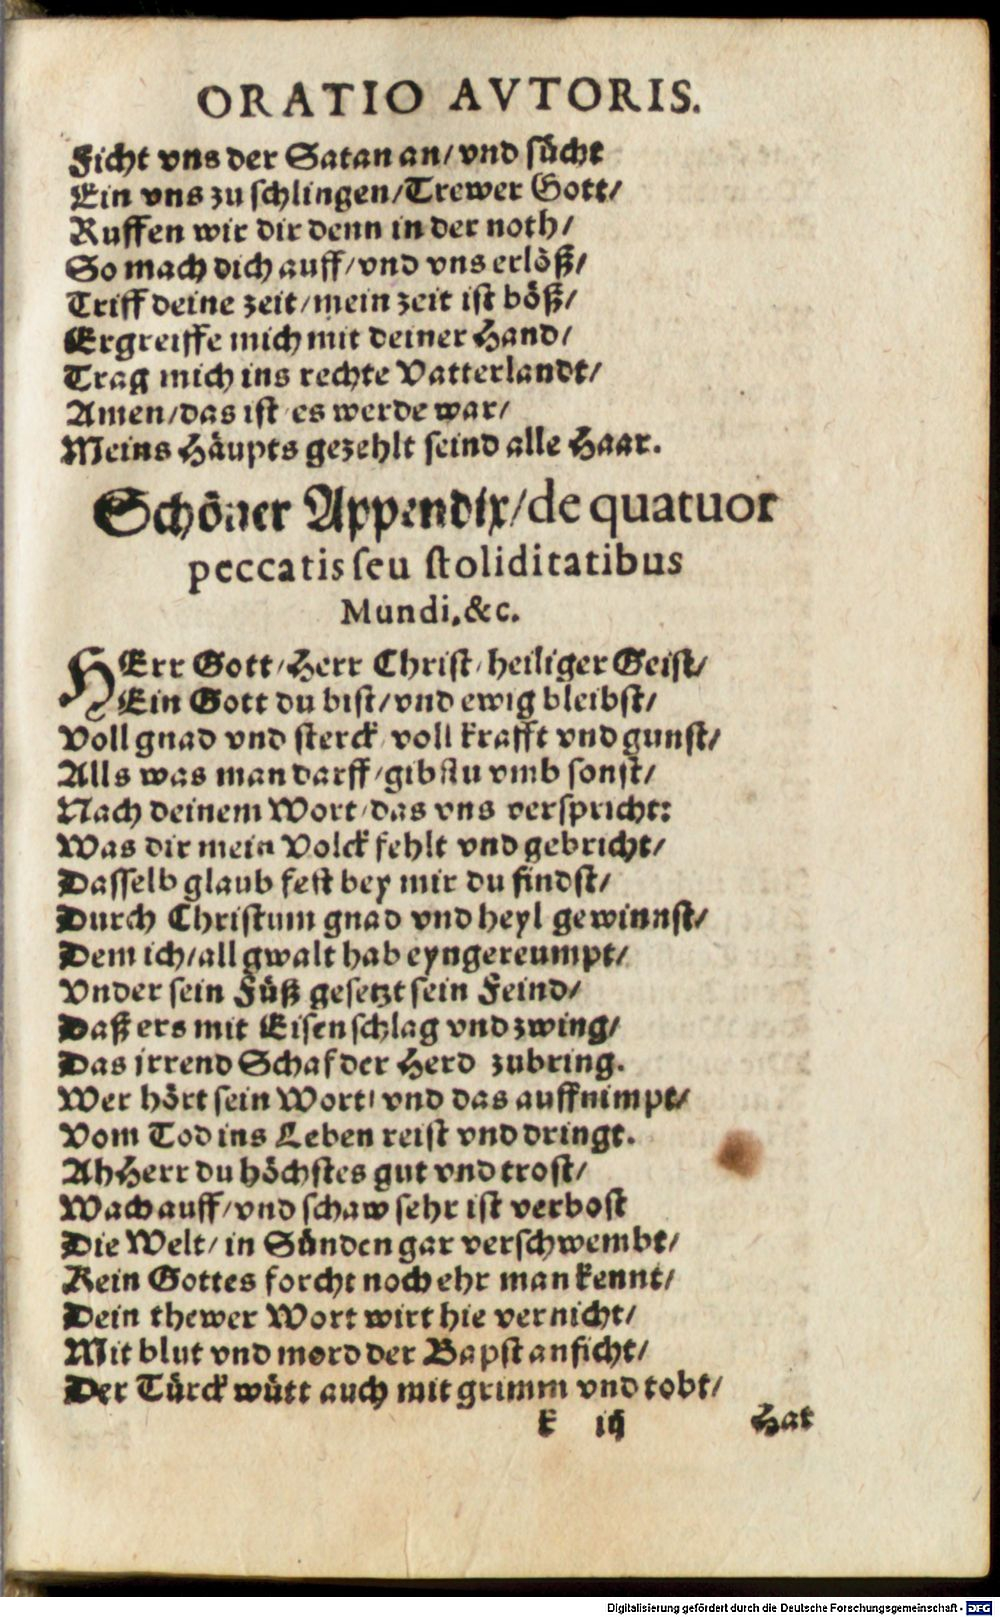 ORATIO AVTORIS.
Ficht vns der Satan an/ vnd sücht
Ein vns zu schlingen/ Trewer Gott/
Ruffen wir dir denn in der noth/
So mach dich auff/ vnd vns erlöß/
Triff deine zeit/ mein zeit ist böß/
Ergreiffe mich mit deiner Hand/
Trag mich ins rechte Vatterlandt/
Amen/ das ist es werde war/
Meins Häupts gezehlt seind alle Haar.
Schöner Appendix/ de quatuor
peccatis seu stoliditatibus
Mundi, &c.
HErr Gott/ Herr Christ/ heiliger Geist/
Ein Gott du bist/ vnd ewig bleibst/
Voll gnad vnd sterck/ voll krafft vnd gunst/
Alls was man darff/ gibstu vmb sonst/
Nach deinem Wort/ das vns verspricht:
Was dir mein Volck fehlt vnd gebricht/
Dasselb glaub fest bey mir du findst/
Durch Christum gnad vnd heyl gewinnst/
Dem ich/ all gwalt hab eyngereumpt/
Vnder sein Füß gesetzt sein Feind/
Daß ers mit Eisen schlag vnd zwing/
Das jrrend Schaf der Herd zubring.
Wer hört sein Wort/ vnd das auffnimpt/
Vom Tod ins Leben reist vnd dringt.
Ah Herr du höchstes gut vnd trost/
Wach auff/ vnd schaw sehr ist verbost
Die Welt/ in Sünden gar verschwembt/
Kein Gottes forcht noch ehr man kennt/
Dein thewer Wort wirt hie vernicht/
Mit blut vnd mord der Bapst anficht/
Der Türck wütt auch mit grimm vnd tobt/
k iij Hat
Digitalisierung gefördert durch die Deutsche Forschungsgemeinschaft - DFG